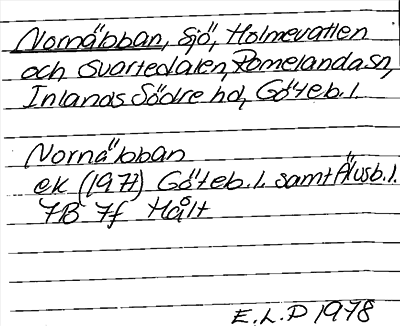 Nornäbban, sjö, Holmevatten
och Svartedalen, Romelanda sn,
Inlands Södre hd, Göteb.l.
Nornäbban
ek (1977) Göteb.l. samt Älvsb.l.
7B 7f Hålt
E.L.D 1978